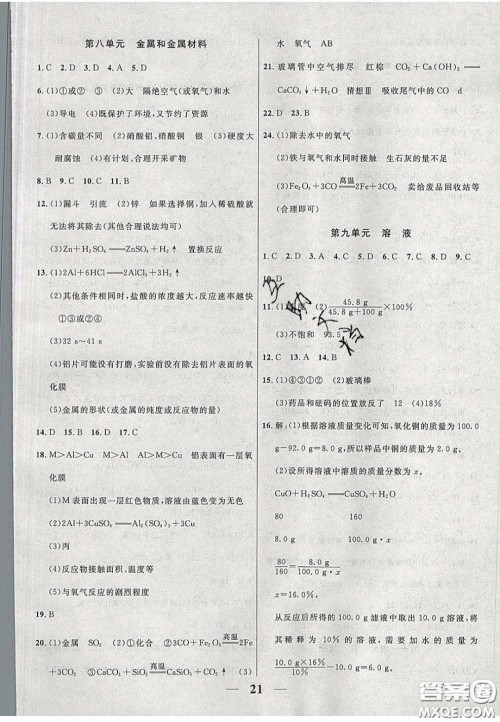 第八单元 金属和金属材料
1. C 2. D 3. D 4. A 5. D
6. (1)①或② ③ (2)大 隔绝空气(或氧气)和水
(3)导电 (4)既保护了环境，又节约了资源
7. (1)含碳量不同 (2)硝酸铝,硝酸铜 银 (3)硬度大
耐腐蚀 (4)有计划,合理开采矿物
8. B 9. D 10. B 11. D
12. (1)漏斗 引流 (2)锌 如果选择铜,加入稀硫酸就
无法将其除去(合理说法均可)
(3)Zn+H₂SO₄══ZnSO₄+H₂↑ 置换反应
13. (1)2Al+6HCl══2AlCl₃+3H₂↑
(2)其他条件相同时,盐酸的浓度越大,反应速率越快
①③④
(3)32 s~41 s
(4)铝片可能没有打磨,实验前没有除去铝片表面的氧
化膜
(5)金属的形状(或金属的纯度或反应物的量)
14. D 15. D 16. B 17. C
18. M>Al>Cu Al>M>Cu Al>Cu>M 铝表面有一层
氧化膜
(1)M表面出现一层红色物质,溶液由蓝色变为无色
(2)2Al+3CuSO₄══Al₂(SO₄)₃+3Cu
(3)丙
(4)反应物接触面积,温度等
(5)与氧气反应的剧烈程度
19. B
20. (1)金属 SO₂ (2)①化合 ②3CO+Fe₂O₃ 高温══ 2Fe
+3CO₂ ③CaCO₃+SiO₂ 高温══ CaSiO₃+CO₂↑ (3)
水 氧气 AB
21. 玻璃管中空气排尽 红棕 CO₂+Ca(OH)₂══
CaCO₃↓+H₂O 猜想Ⅲ 吸收尾气中的CO d
22. D 23. C
24. (1)除去水中的氧气
(2)铁与氧气和水同时接触 生石灰的量不足
(3)Fe₂O₃+3CO 高温══ 2Fe+3CO₂ 卖给废品回收站等
(合理即可)
第九单元 溶液
1. B 2. B 3. C 4. C 5. A 6. D 7. C 8. D 9. C
10. D
11. (2) 45.8 g/(45.8 g+100 g)×100%
(3)不饱和 93.5
12. C 13. A 14. B
15. (1)④③①② (2)玻璃棒
(3)药品和砝码的位置放反了 12 (4)18%
16. (1)根据溶液质量变化可知,氧化铜的质量为100.0
g-92.0 g=8.0 g,所以样品中铜的质量为2.0 g。
(2)设所得溶液中溶质的质量分数为x。
CuO+H₂SO₄══CuSO₄+H₂O
80 160
8.0 g 100.0 g·x
80/160=8.0 g/(100.0 g·x)
x=16.0%,
从反应后所得的100.0 g滤液中取出10.0 g溶液,
将其稀释为10%的溶液,需要加水的质量为
10.0 g×16%/10%-10.0 g=6.0 g。
21
答案圈
MXQE.COM